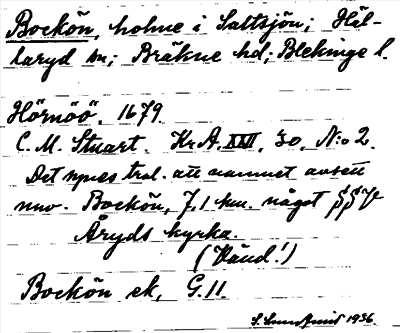 Bockön, holme i Saltsjön; Häl-
laryd sn; Bräkne hd; Blekinge l.
Hörnöö. 1679.
C. M. Stuart. Kr.A. XXII, 30, N:o 2.
Det synes trol. att namnet avsett
nuv. Bockön, 7,1 km. något
Åryds kyrka.
(Vänd!)
Bockön ek, G.11.
1936.